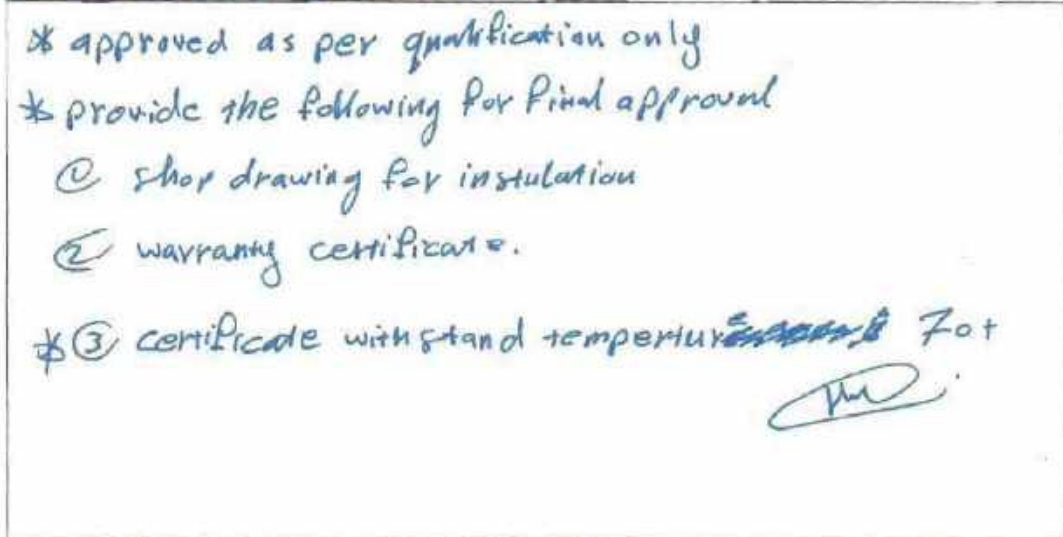 * approved as per qualification only
* provide the following for final approval
① shop drawing for instulation
② warranty certificate.
* ③ certificate withstand temperture 70+